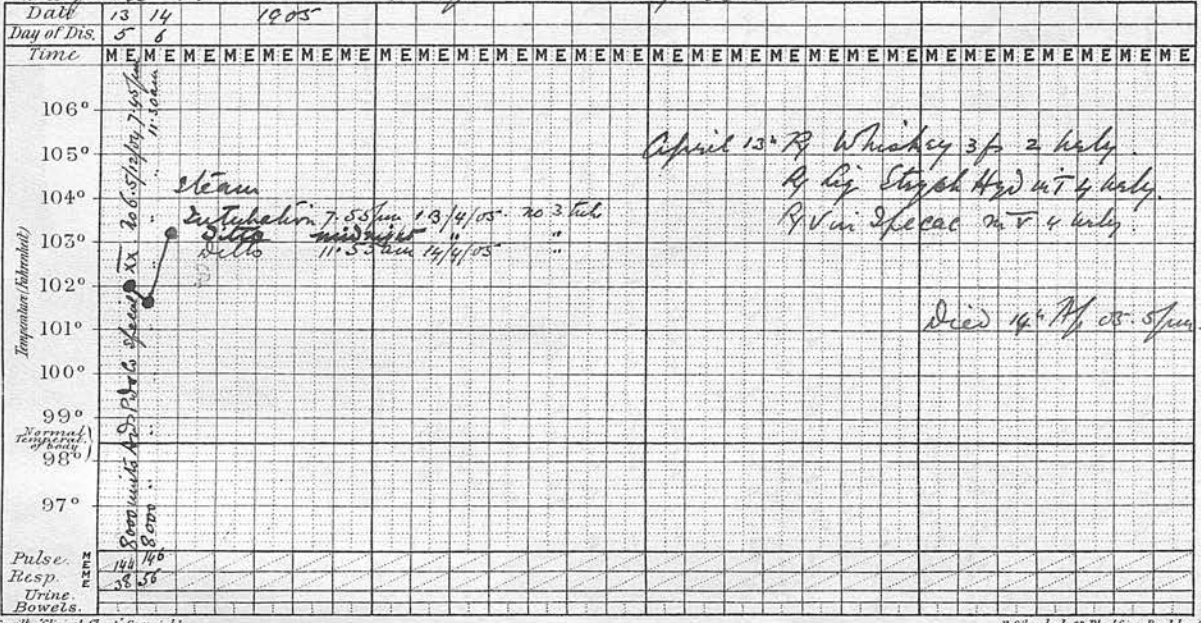 Date 13 14 1905
Day of Dis. 5 6
Time M E M E M E M E M E M E M E M E M E M E M E M E M E M E M E M E M E M E M E M E M E M E M E M E M E M E M E M E
106°
105°
104°
103°
102°
101°
100°
99°
98°
97°
Temperature (Fahrenheit)
Normal
Temperat.
of body
8000 units P.D. & Co special XX no 6. 5/12/04 7.45 pm
8000 " " " 11.30 am
Steam
Intubation 7.55 pm 13/4/05 no 3 tube
Ditto midnight " "
Ditto 11.55 am 14/4/05 "
April 13th Rx Whiskey 2 hrly.
Rx Liq Strych Hyd 4 hrly.
Rx Vin Ipecac 4 hrly.
Died 14th Ap 05. 5 pm
Pulse. M E 144 146
Resp. M E 38 56
Urine.
Bowels.